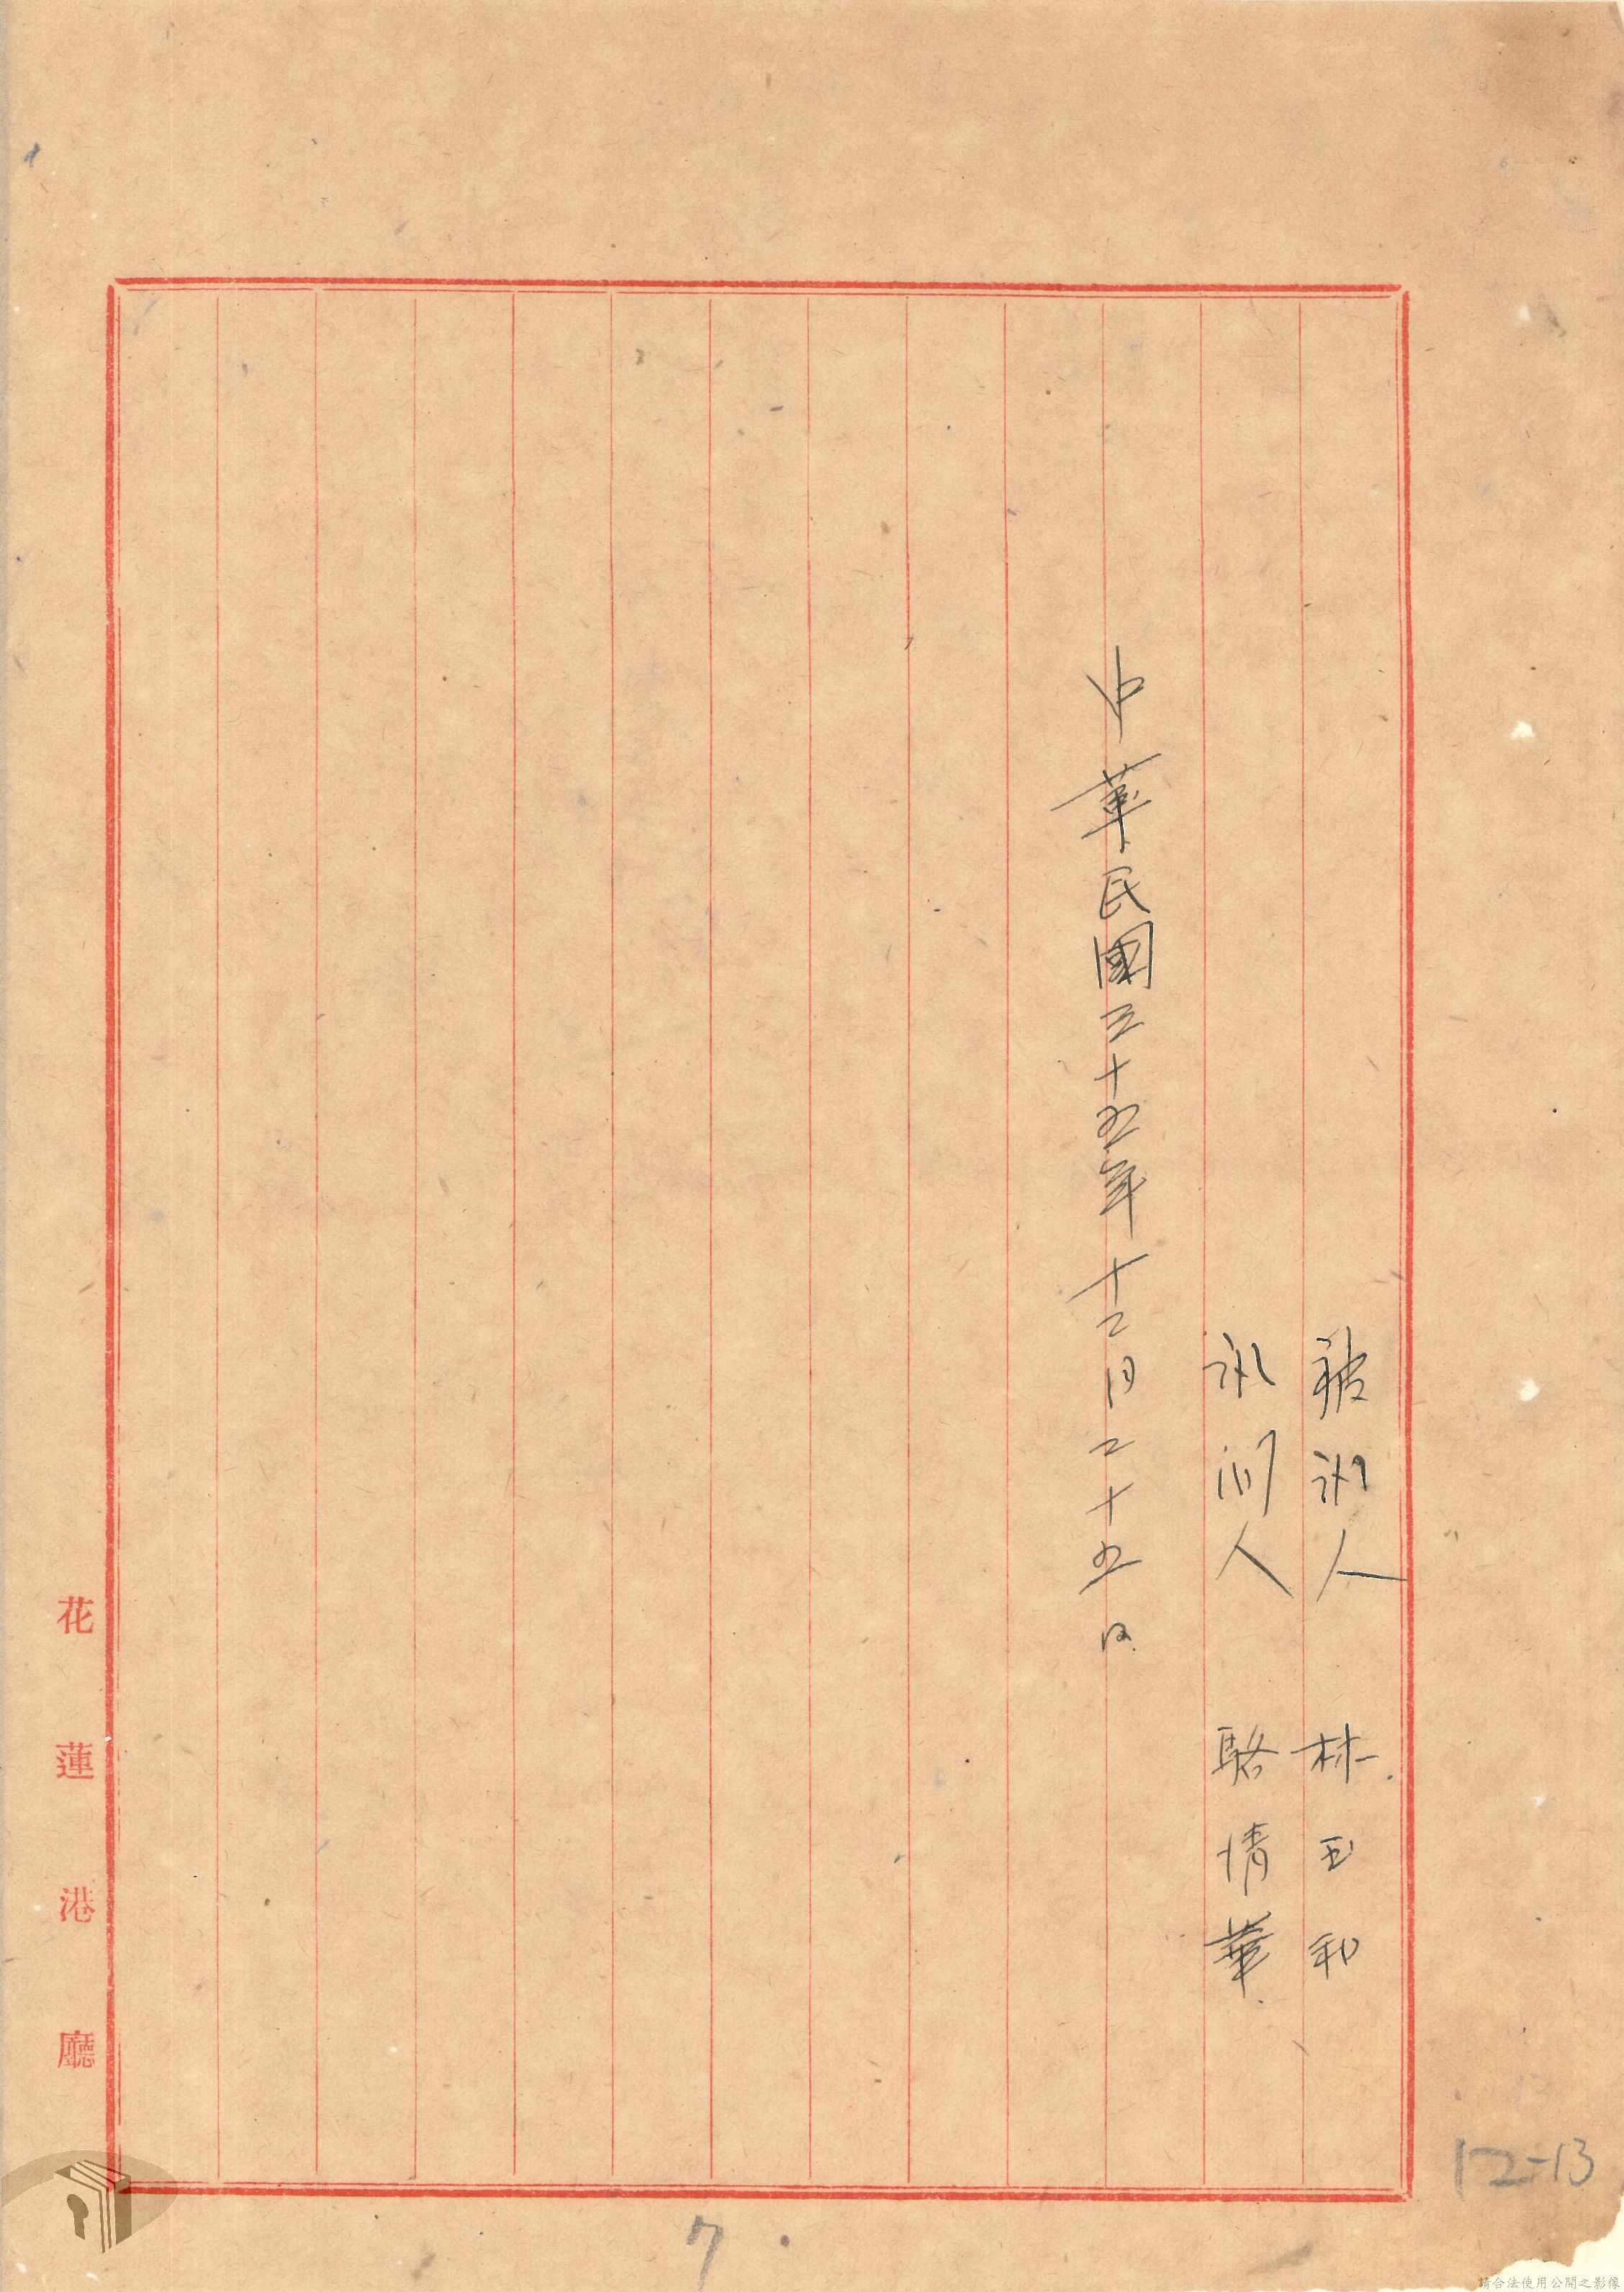 被訊人 林玉和
訊問人 駱情華
中華民國三十五年十二月二十五日
花蓮港廳
12-13
7
請合法使用公開之影像